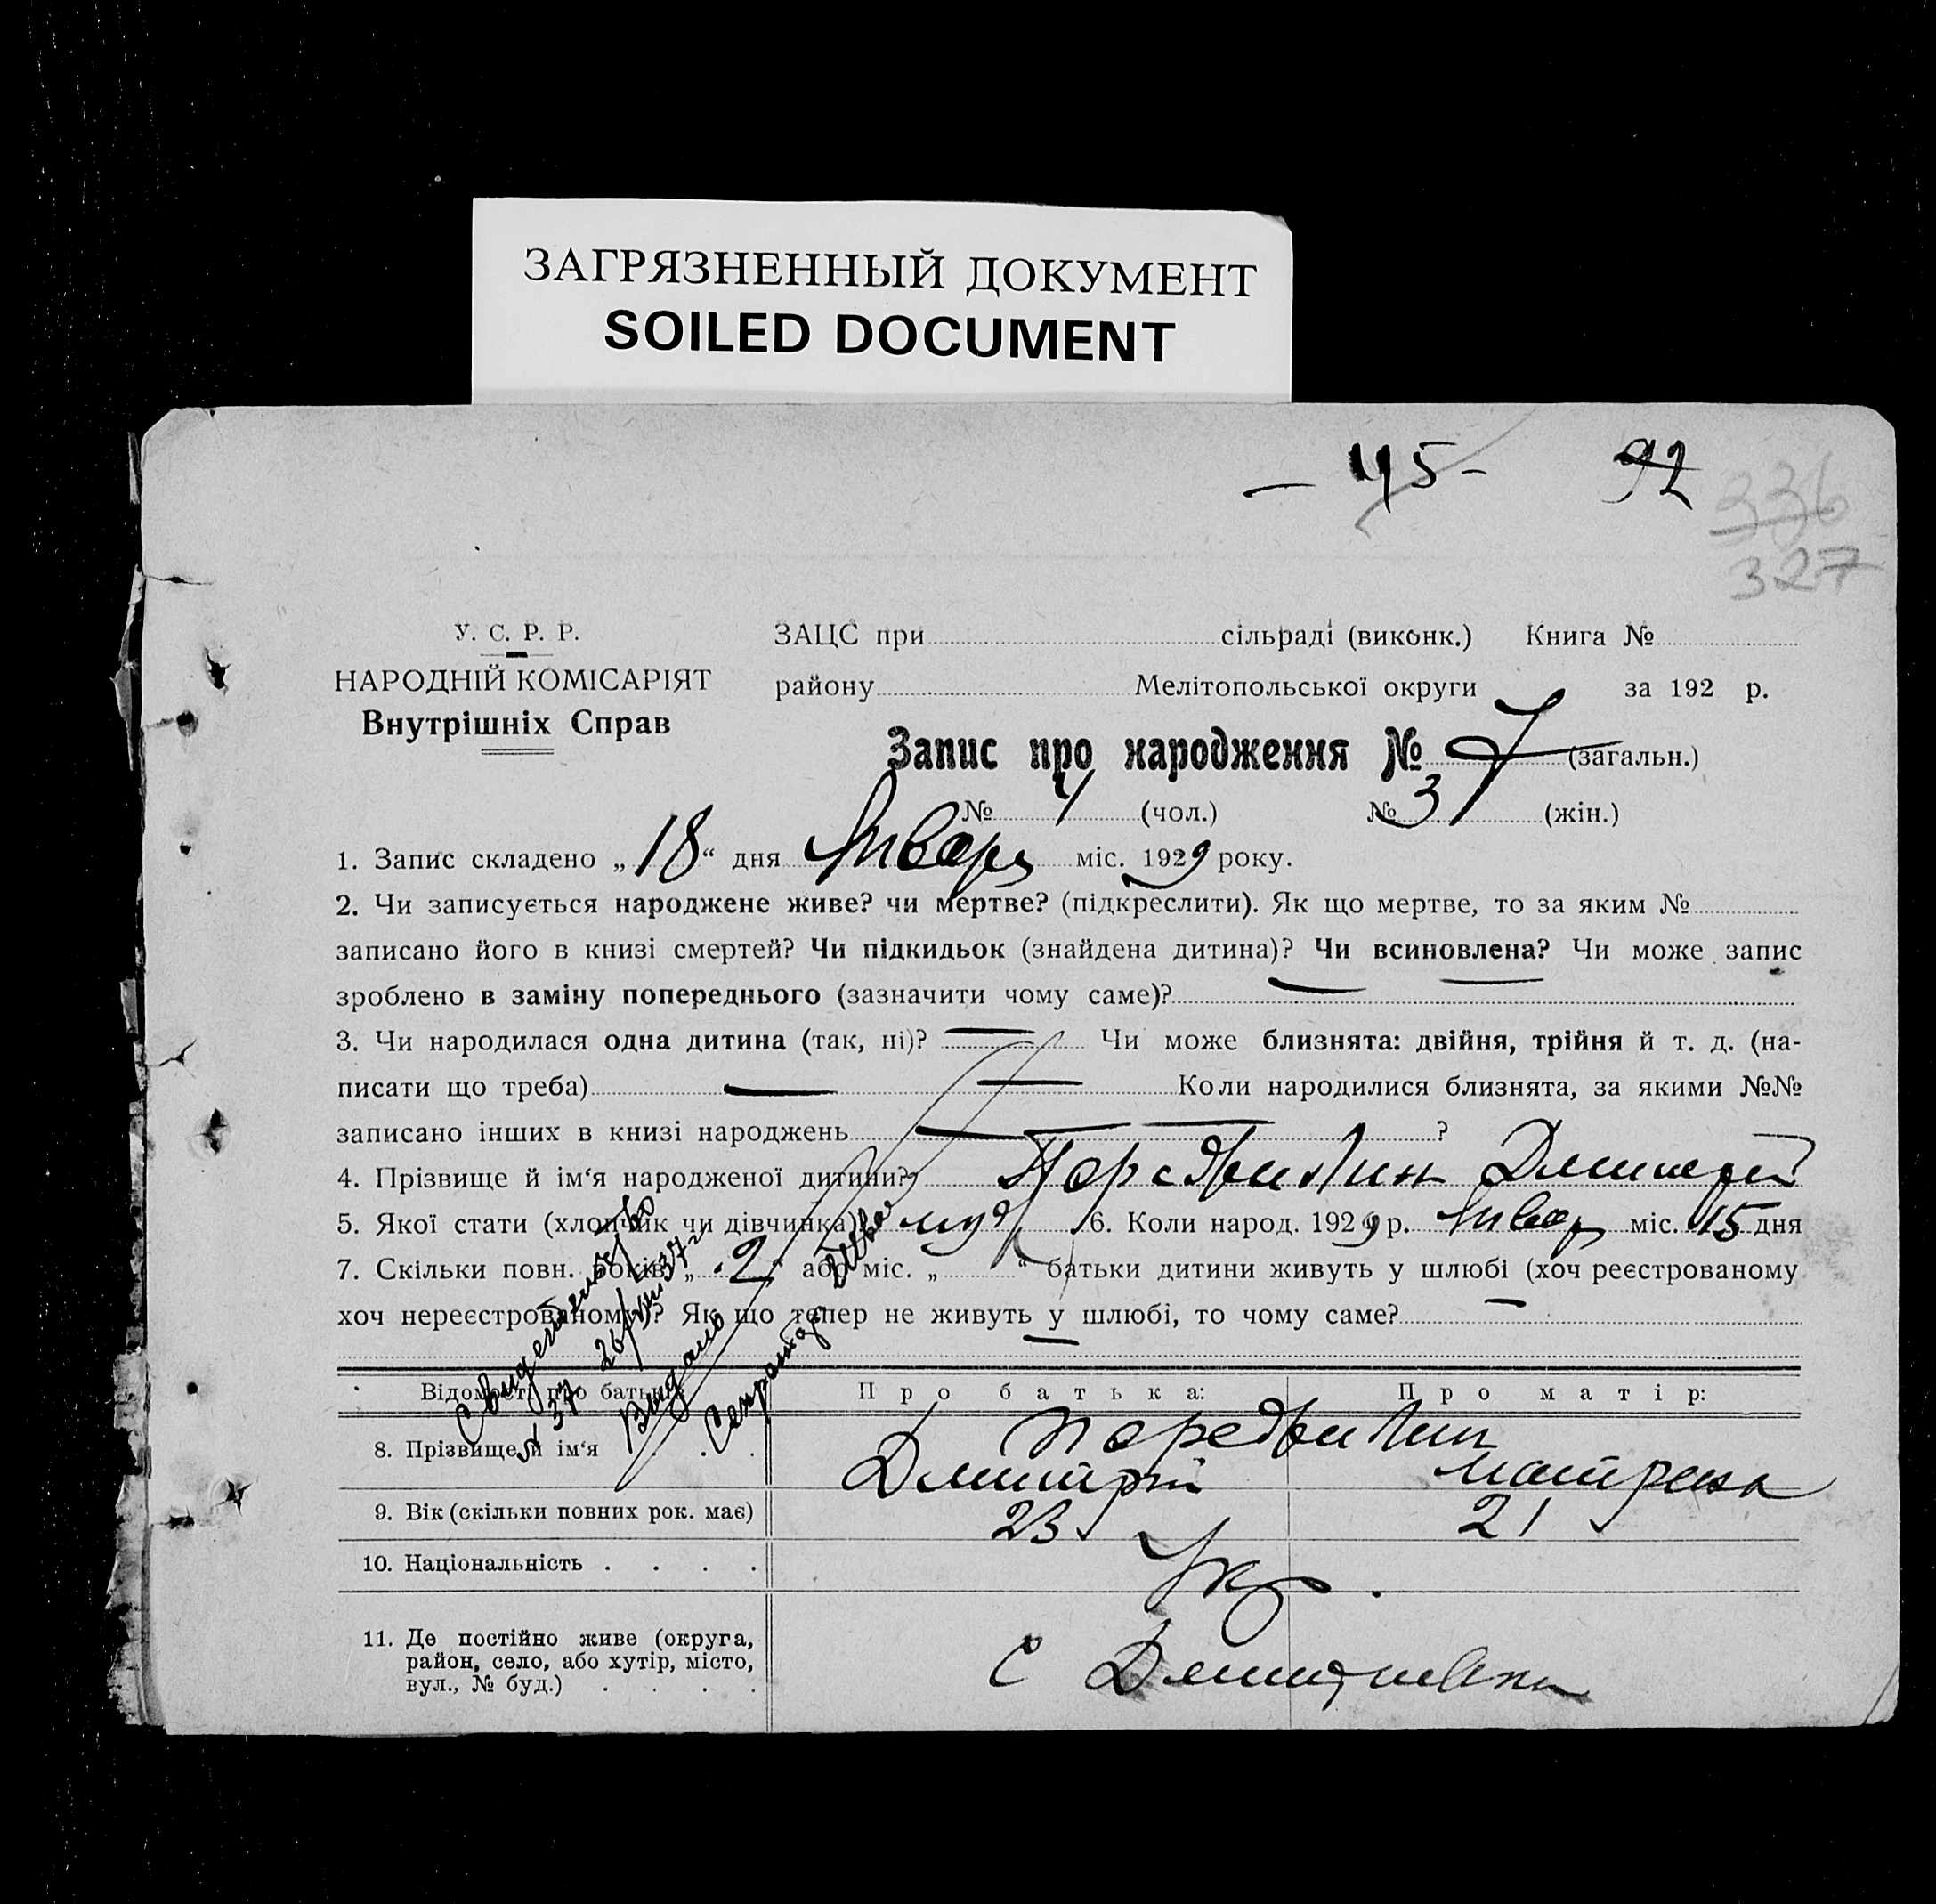 ЗАГРЯЗНЕННЫЙ ДОКУМЕНТ
SOILED DOCUMENT
92
336
327
У. С. Р. Р.
НАРОДНІЙ КОМІСАРІЯТ
Внутрішніх Справ
ЗАЦС при сільраді (виконк.) Книга №
району Мелітопольської округи за 192 р.
Запис про народження № 7 (загальн.)
№ 4 (чол.) № 3 (жін.)
1. Запис складено „18“ дня Январь міс. 1929 року.
2. Чи записується народжене живе? чи мертве? (підкреслити). Як що мертве, то за яким №
записано його в книзі смертей? Чи підкидьок (знайдена дитина)? Чи всиновлена? Чи може запис
зроблено в заміну попереднього (зазначити чому саме)?
3. Чи народилася одна дитина (так, ні)? — Чи може близнята: двійня, трійня й т. д. (на-
писати що треба) — — Коли народилися близнята, за якими №№
записано інших в книзі народжень — — — ?
4. Прізвище й ім‘я народженої дитини? Дмитрій
5. Якої стати (хлопчик чи дівчинка)? муж 6. Коли народ. 1929 р. Январ міс. 15 дня
7. Скільки повн. років „2“ або міс. „ “ батьки дитини живуть у шлюбі (хоч реєстрованому
хоч нереєстрованому)? Як що тепер не живуть у шлюбі, то чому саме?
Відомості про батьків Про батька: Про матір:
8. Прізвище й ім‘я Дмитрій Матрена
9. Вік (скільки повних рок. має) 23 21
10. Національність Укр.
11. Де постійно живе (округа,
район, село, або хутір, місто,
вул., № буд.)
С
Выдано